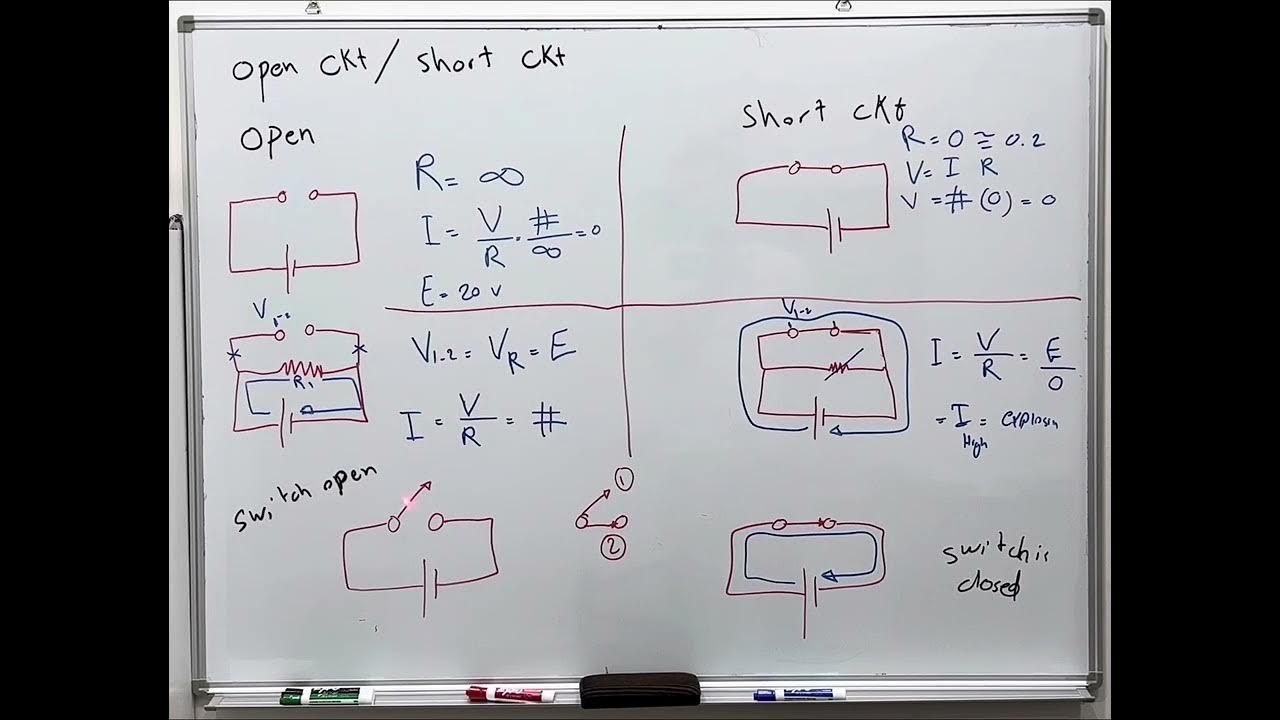 open ckt / short ckt
open
R = ∞
I = V/R = #/∞ = 0
E = 20 v
V₁₋₂
R₁
V₁₋₂ = V_R = E
I = V/R = #
switch open
① 
②
short ckt
R = 0 ≅ 0.2
V = I R
V = # (0) = 0
V₁₋₂
I = V/R = E/0
= I High = explosin
switch is
closed